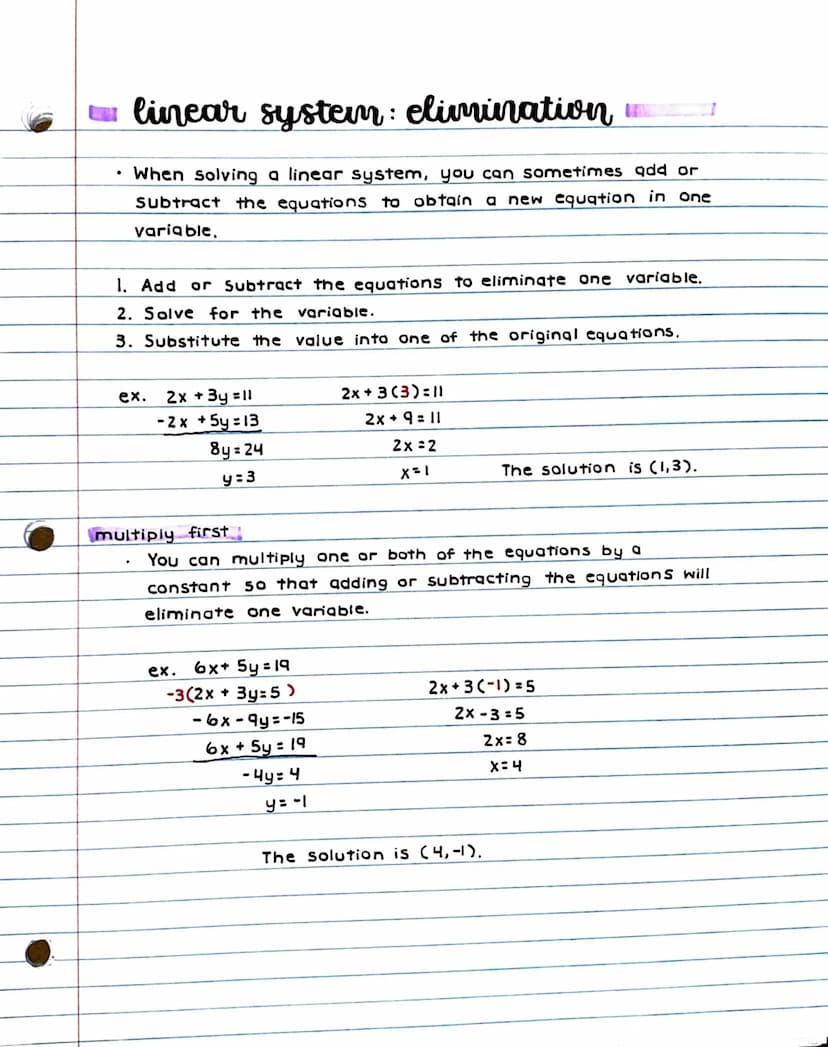 linear system: elimination
• When solving a linear system, you can sometimes add or
subtract the equations to obtain a new equation in one
variable.
1. Add or subtract the equations to eliminate one variable.
2. Solve for the variable.
3. Substitute the value into one of the original equations.
ex. 2x + 3y = 11
-2x + 5y = 13
8y = 24
y = 3
2x + 3(3) = 11
2x + 9 = 11
2x = 2
x = 1
The solution is (1,3).
multiply first
• You can multiply one or both of the equations by a
constant so that adding or subtracting the equations will
eliminate one variable.
ex. 6x + 5y = 19
-3(2x + 3y = 5)
-6x - 9y = -15
6x + 5y = 19
-4y = 4
y = -1
2x + 3(-1) = 5
2x - 3 = 5
2x = 8
x = 4
The solution is (4,-1).